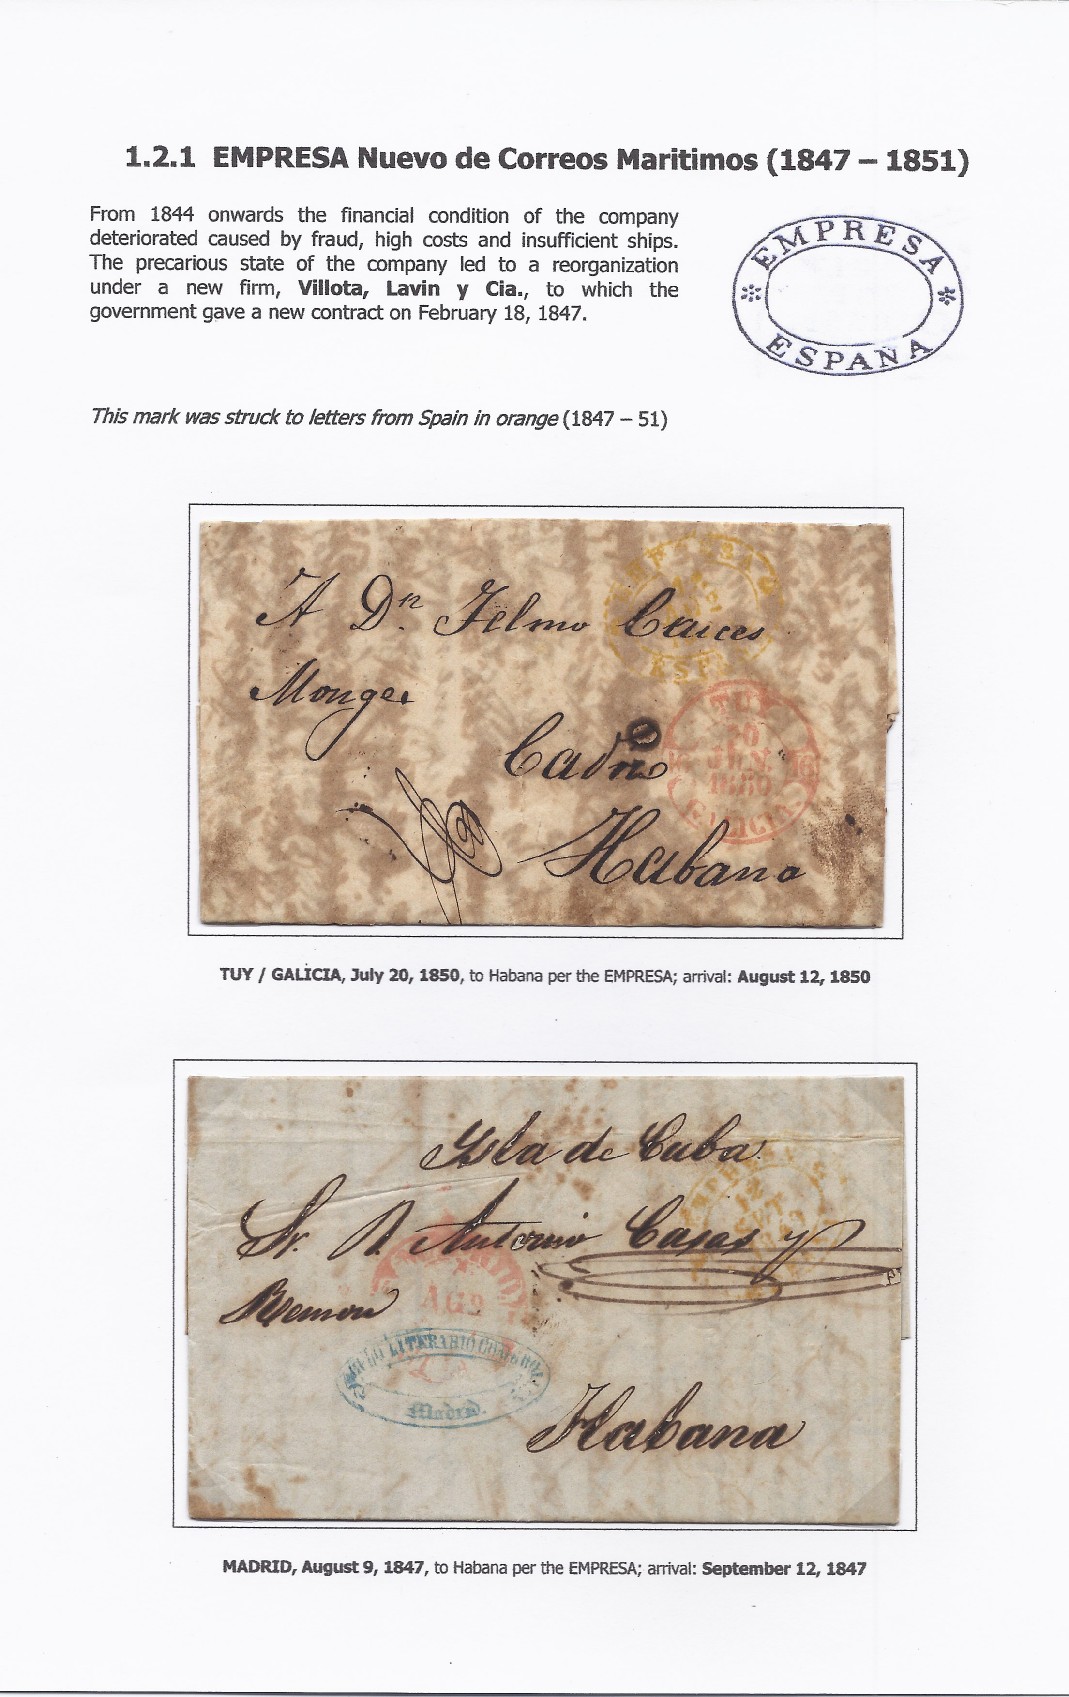 1.2.1 EMPRESA Nuevo de Correos Maritimos (1847 – 1851)
From 1844 onwards the financial condition of the company
deteriorated caused by fraud, high costs and insufficient ships.
The precarious state of the company led to a reorganization
under a new firm, Villota, Lavin y Cia., to which the
government gave a new contract on February 18, 1847.
EMPRESA
ESPAÑA
This mark was struck to letters from Spain in orange (1847 – 51)
A Dn. Telmo
Monge
Habana
TUY
20
1850
GALICIA
TUY / GALICIA, July 20, 1850, to Habana per the EMPRESA; arrival: August 12, 1850
Isla de Cuba
Sr. D. Antonio Casas y
Remon
AG
LITERARIO
Madrid.
Habana
MADRID, August 9, 1847, to Habana per the EMPRESA; arrival: September 12, 1847